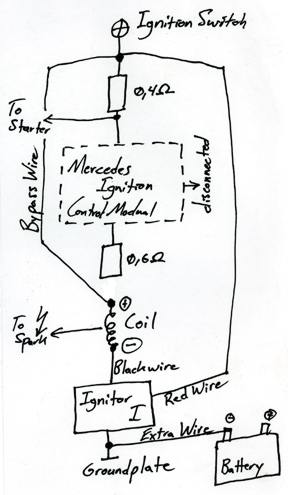 Ignition Switch
0,4Ω
To
Starter
Bypass Wire
Mercedes
Ignition
Control Modual
disconnected
0,6Ω
+
Coil
To
Spark
−
Blackwire
Ignitor
I
Red Wire
Extra Wire
Groundplate
Battery